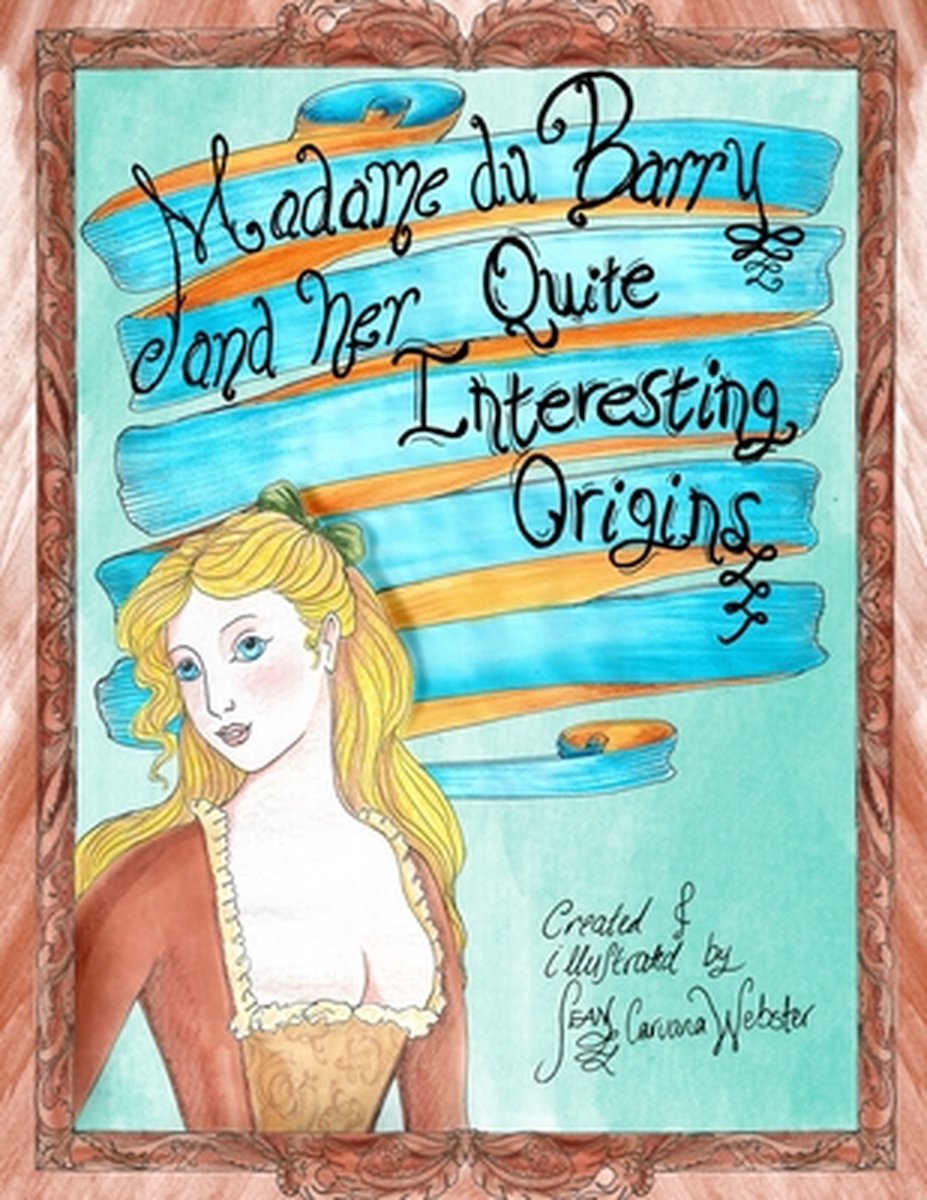 Madame du Barry
and her Quite
Interesting
Origins
Created &
illustrated by
SEAN Caruana Webster